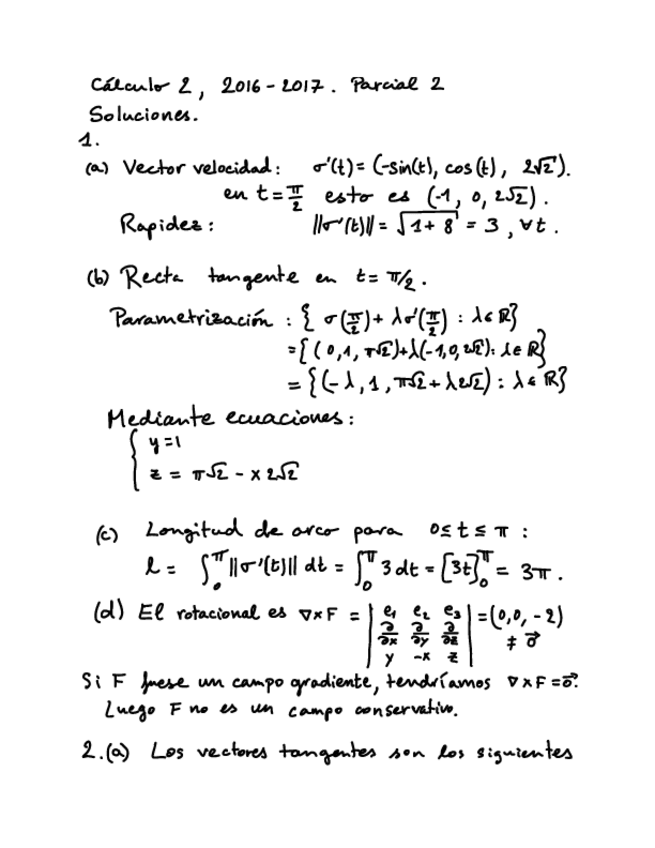 Cálculo 2, 2016-2017. Parcial 2
Soluciones.
1.
(a) Vector velocidad: σ'(t) = (-sin(t), cos(t), 2√2).
en t = π/2 esto es (-1, 0, 2√2).
Rapidez: ||σ'(t)|| = √(1+8) = 3, ∀t.
(b) Recta tangente en t = π/2.
Parametrización: { σ(π/2) + λσ'(π/2) : λ ∈ ℝ}
= {(0,1, π√2)+λ(-1,0,2√2): λ ∈ ℝ}
= {(-λ, 1, π√2 + λ2√2) : λ ∈ ℝ}
Mediante ecuaciones:
{ y = 1
z = π√2 - x 2√2
(c) Longitud de arco para 0 ≤ t ≤ π :
l = ∫₀^π ||σ'(t)|| dt = ∫₀^π 3 dt = [3t]₀^π = 3π.
(d) El rotacional es ∇×F = | e₁ e₂ e₃ | = (0,0,-2)
∂/∂x ∂/∂y ∂/∂z ≠ 0⃗
y -x z
Si F fuese un campo gradiente, tendríamos ∇×F = 0⃗.
Luego F no es un campo conservativo.
2.(a) Los vectores tangentes son los siguientes